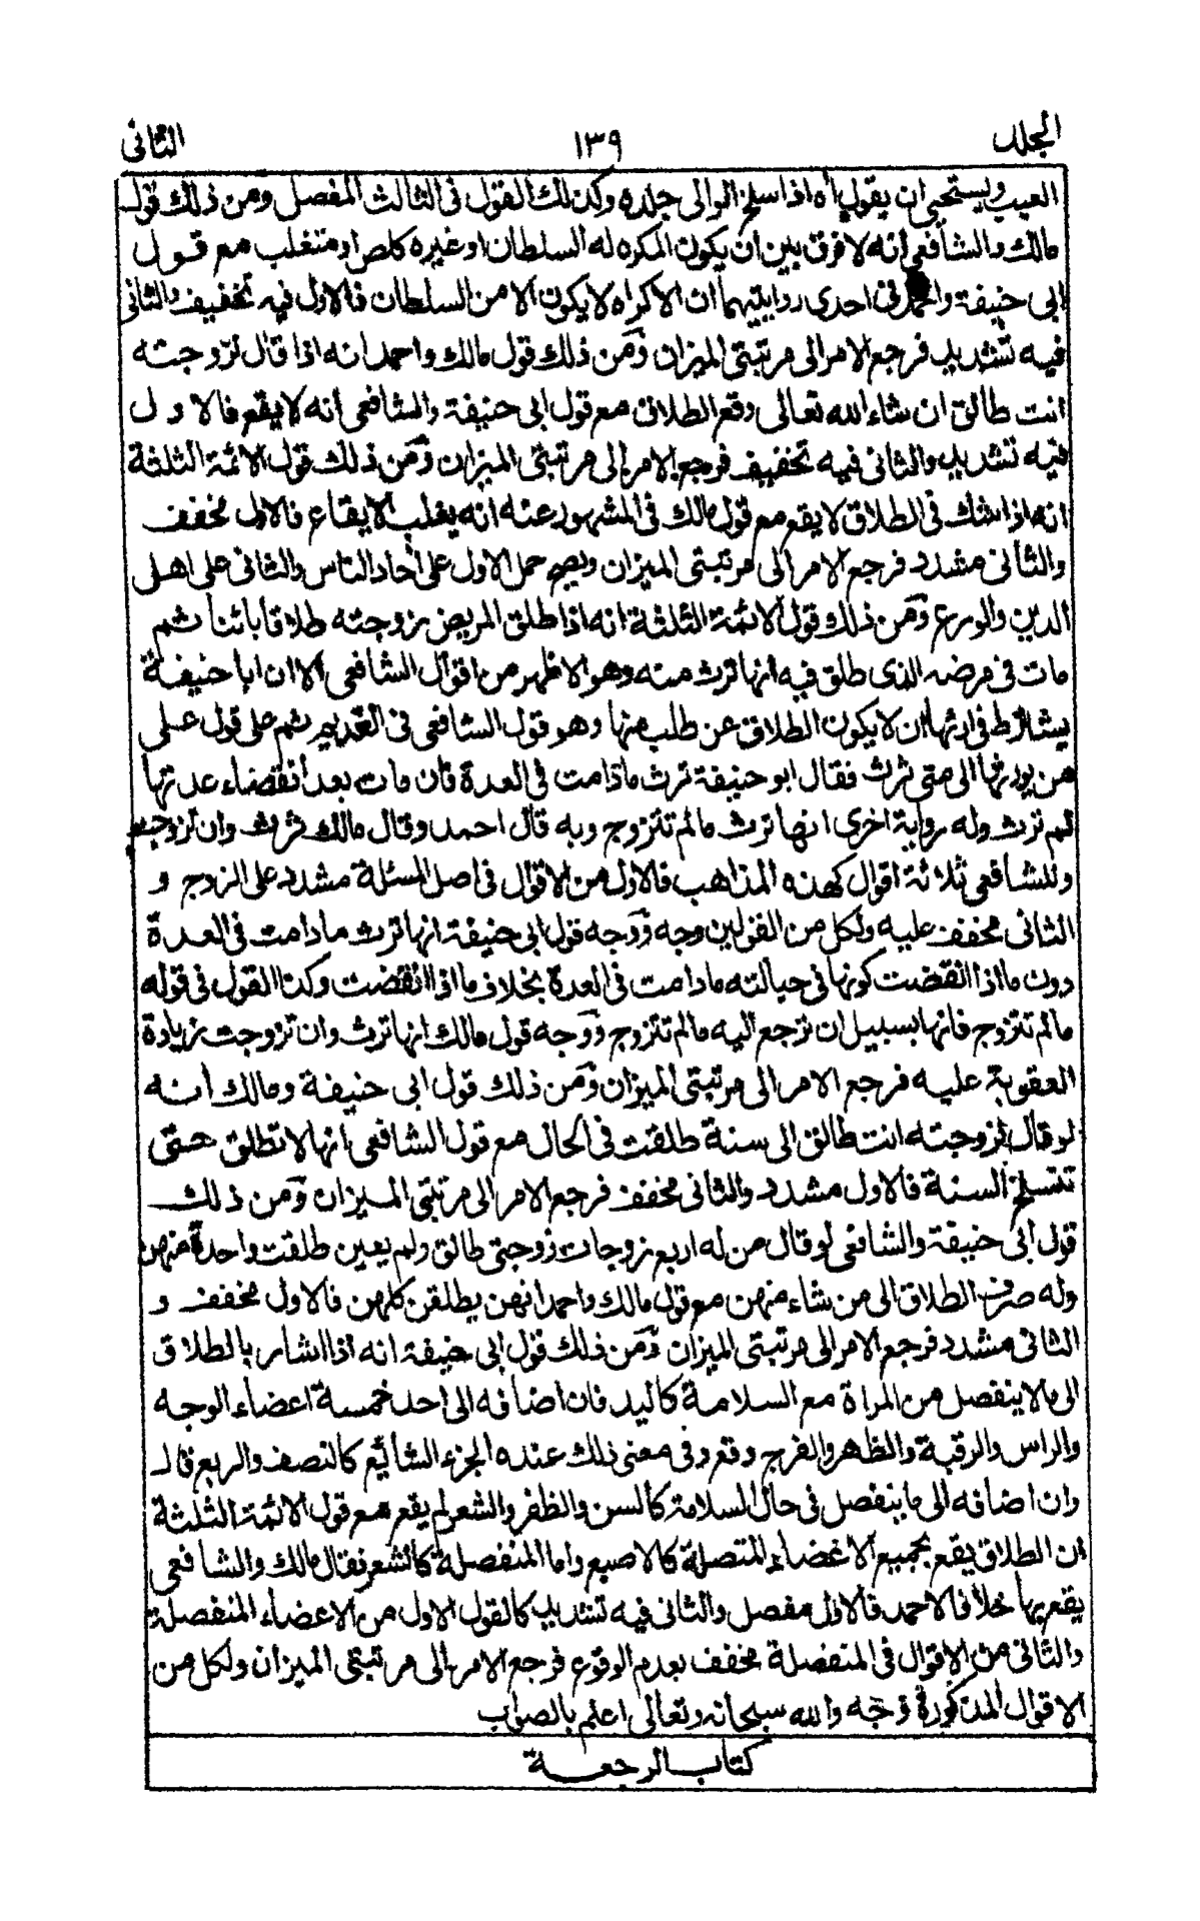 المجلد ١٣٩ الثانى
العيب ويستحيى ان يقول أه اذا سلخ الوالى جلده وكذلك القول فى الثالث المفصل ومن ذلك قول
مالك والشافعى انه لا فرق بين ان يكون المكره له السلطان او غيره كلص او متغلب مع قول
ابى حنيفة واحمد فى احدى روايتيهما ان الاكراه لا يكون الا من السلطان فالاول فيه تخفيف والثانى
فيه تشديد فرجع الامر الى مرتبتى الميزان ومن ذلك قول مالك واحمد انه اذا قال لزوجته
انت طالق ان شاء الله تعالى وقع الطلاق مع قول ابى حنيفة والشافعى انه لا يقع فالاول
فيه تشديد والثانى فيه تخفيف فرجع الامر الى مرتبتى الميزان ومن ذلك قول الائمة الثلثة
انه اذا شك فى الطلاق لا يقع مع قول مالك فى المشهور عنه انه يغلب الايقاع فالاول مخفف
والثانى مشدد فرجع الامر الى مرتبتى الميزان ويصح حمل الاول على أحاد الناس والثانى على اهل
الدين والورع ومن ذلك قول الائمة الثلثة انه اذا طلق المريض زوجته طلاقا بائنا ثم
مات فى مرضه الذى طلق فيه انها ترث منه وهو الاظهر من اقوال الشافعى الا ان ابا حنيفة
يشترط فى ارثها ان لا يكون الطلاق عن طلب منها وهو قول الشافعى فى القديم ثم على قول على
من يورثها الى متى ترث فقال ابو حنيفة ترث مادامت فى العدة فان مات بعد انقضاء عدتها
لم ترث وله رواية اخرى انها ترث مالم تتزوج وبه قال احمد وقال مالك ترث وان تزوجت
وللشافعى ثلاثة اقوال كهذه المذاهب فالاول من الاقوال فى اصل المسئلة مشدد على الزوج و
الثانى مخفف عليه ولكل من القولين وجه ووجه قول ابى حنيفة انها ترث مادامت فى العدة
دون ما اذا انقضت كونها فى حبالته مادامت فى العدة بخلاف ما اذا انقضت وكذا القول فى قوله
مالم تتزوج فانها بسبيل ان ترجع اليه مالم تتزوج ووجه قول مالك انها ترث وان تزوجت زيادة
العقوبة عليه فرجع الامر الى مرتبتى الميزان ومن ذلك قول ابى حنيفة ومالك انه
لو قال لزوجته انت طالق الى سنة طلقت فى الحال مع قول الشافعى انها لا تطلق حتى
تنسلخ السنة فالاول مشدد والثانى مخفف فرجع الامر الى مرتبتى الميزان ومن ذلك
قول ابى حنيفة والشافعى لو قال من له اربع زوجات زوجتى طالق ولم يعين طلقت واحدة منهن
وله صرف الطلاق الى من شاء منهن مع قول مالك واحمد انهن يطلقن كلهن فالاول مخفف و
الثانى مشدد فرجع الامر الى مرتبتى الميزان ومن ذلك قول ابى حنيفة انه اذا اشار بالطلاق
الى مالا ينفصل من المراة مع السلامة كاليد فان اضافه الى احد خمسة اعضاء الوجه
والراس والرقبة والظهر والفرج وقع وفى معنى ذلك عنده الجزء الشائع كالنصف والربع قال
وان اضافه الى ما ينفصل فى حال السلامة كالسن والظفر والشعر لم يقع مع قول الائمة الثلثة
ان الطلاق يقع بجميع الاعضاء المتصلة كالاصبع واما المنفصلة كالشعر فقال مالك والشافعى
يقع بها خلافا لاحمد فالاول مفصل والثانى فيه تشديد كالقول الاول من الاعضاء المنفصلة
والثانى من الاقوال فى المنفصلة مخفف بعدم الوقوع فرجع الامر الى مرتبتى الميزان ولكل من
الاقوال المذكورة وجه والله سبحانه وتعالى اعلم بالصواب
كتاب الرجعة